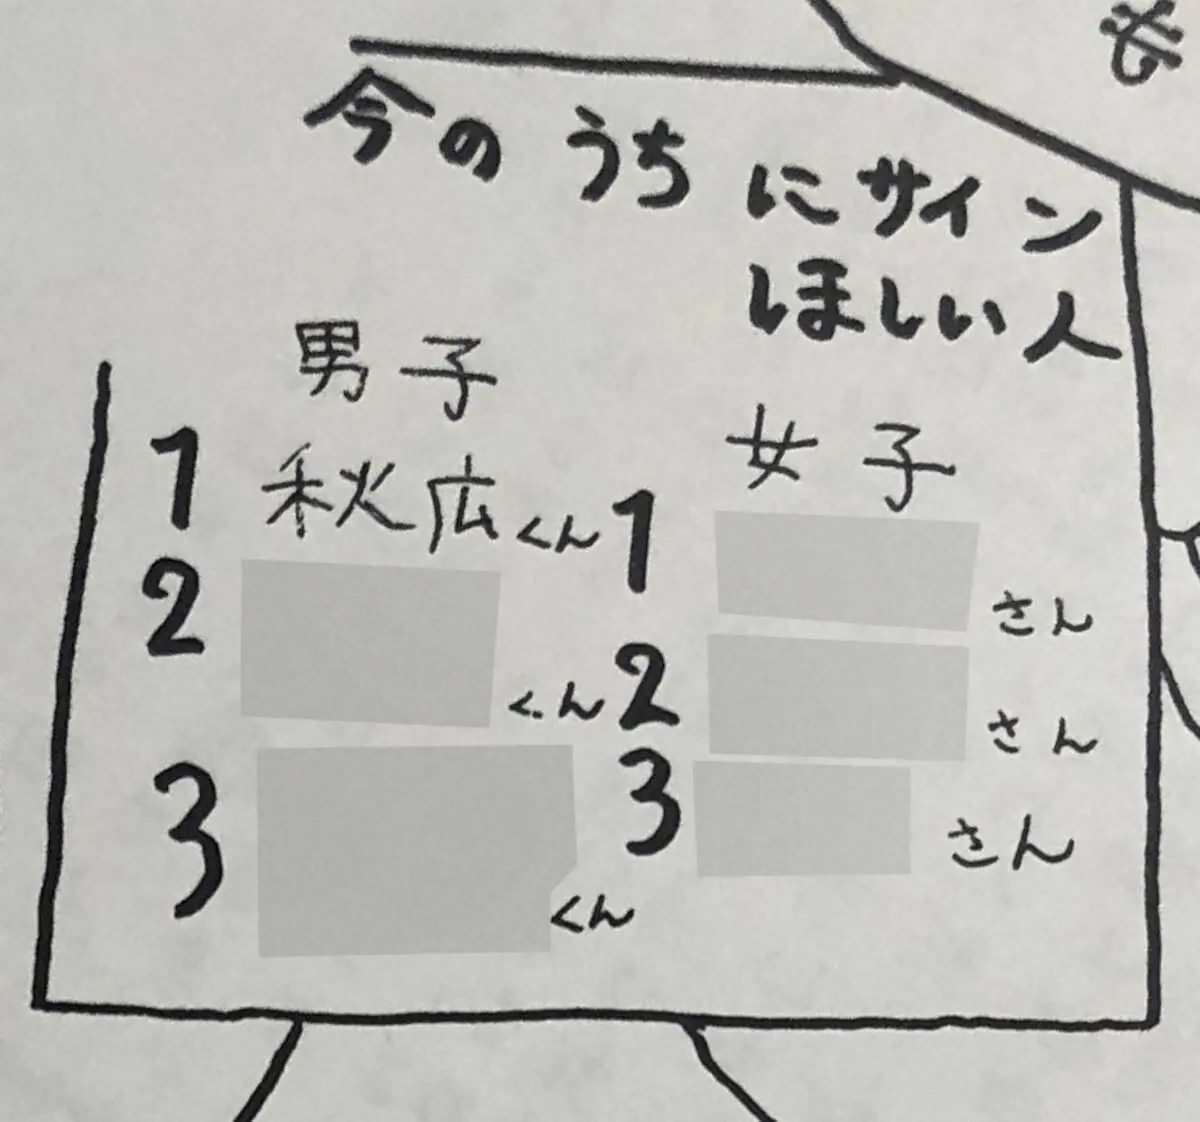 今のうちにサイン
ほしい人
男子
1 秋広くん
2 くん
3 くん
女子
1 さん
2 さん
3 さん